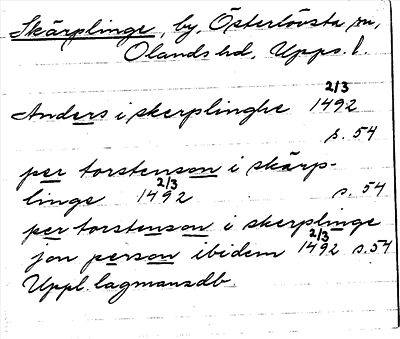 Skärplinge, by, Österlövsta sn,
Olands hd, Upps. l.
Anders i skerplinghe 2/3 1492
s. 54
per torstenson i skärp-
linge 2/3 1492 s. 54
per torstenson i skerplinge
jon person ibidem 2/3 1492 s. 54
Uppl. lagmansdb.